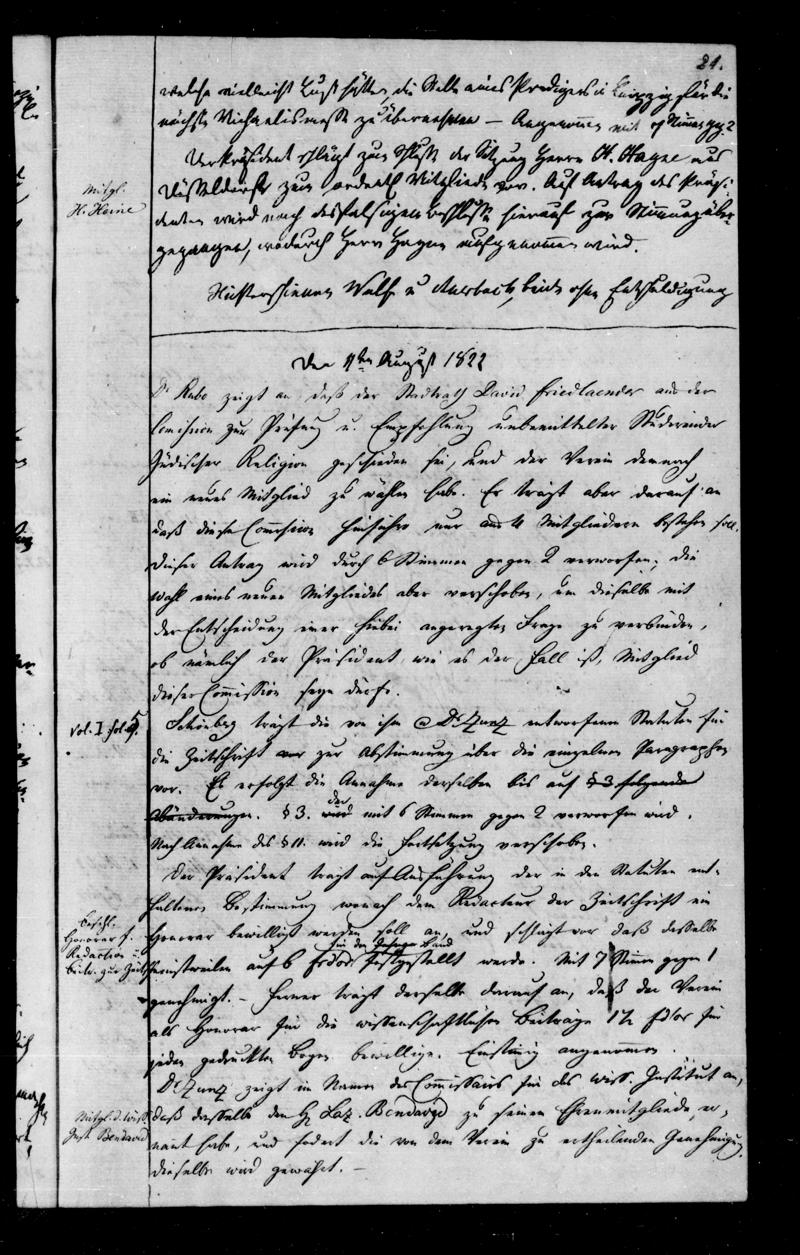 21.
welche vielleicht Lust hätten, die Stelle eines Predigers in Leipzig für die
nächste Michaelismesse zu übernehmen — Angenommen mit 6 Stimmen gg. 2
Der Präsident schlägt zum Schluß der Sitzung Herrn H. Heyne aus
Düsseldorf zum ordentl. Mitgliede vor. Auf Antrag des Präsi-
denten wird nach desfalsigem Beschlusse hierauf zur Stimmung über-
gegangen, wodurch Herr Heyne aufgenommen wird.
Mitgl.
H. Heine
Nichterschienen Wolf u Auerbach, beide ohne Entschuldigung
Den 11ten August 1822
Dr Rubo zeigt an daß der Stadtrath David Friedlaender aus der
Comission zur Prüfung u. Empfehlung unbemittelter Studirender
Jüdischer Religion geschieden sei, und der Verein demnach
ein neues Mitglied zu wählen habe. Er trägt aber darauf an
daß diese Comission hinführo nur aus 4 Mitgliedern bestehen soll.
Dieser Antrag wird durch 6 Stimmen gegen 2 verworfen; die
Wahl eines neuen Mitgliedes aber verschoben, um dieselbe mit
der Entscheidung einer hiebei angeregten Frage zu verbinden,
ob nämlich der Präsident, wie es der Fall ist, Mitglied
dieser Commission seyn dürfe.
Vol. I fol 5.
Schönberg trägt die von ihm Dr Zunz entworfenen Statuten für
die Zeitschrift zur Abstimmung über die einzelnen Paragraphen
vor. Es erfolgt die Annahme derselben bis auf § 3 folgende
Abänderungen. § 3. der mit 6 Stimmen gegen 2 verworfen wird.
Nach Annahme des § 11. wird die Fortsetzung verschoben.
Der Präsident trägt auf Ausführung der in den Statuten ent-
haltenen Bestimmung wonach dem Redacteur der Zeitschrift ein
Honorar bewilligt werden soll an, und schlägt vor daß dasselbe
für den Band
einstweilen auf 6 frdor festgestellt werde. Mit 7 Stimmen gegen 1
Beschl.
Honorar f.
Redaction u.
Beitr. zur Zeits
genehmigt. — Ferner trägt derselbe darauf an, daß der Verein
als Honorar für die wissenschaftlichen Beiträge 1½ fdor für
jeden gedruckten Bogen bewillige. Einstimig angenommen.
Dr Zunz zeigt im Namen der Commission für das wiss. Institut an,
daß dasselbe den H Laz. Bendavid zu seinem Ehrenmitgliede er-
nant habe, und fodert die von dem Verein zu ertheilenden Genehmigung.
dieselbe wird gewährt. —
Mitgl. d. wiss.
Inst Bendavid